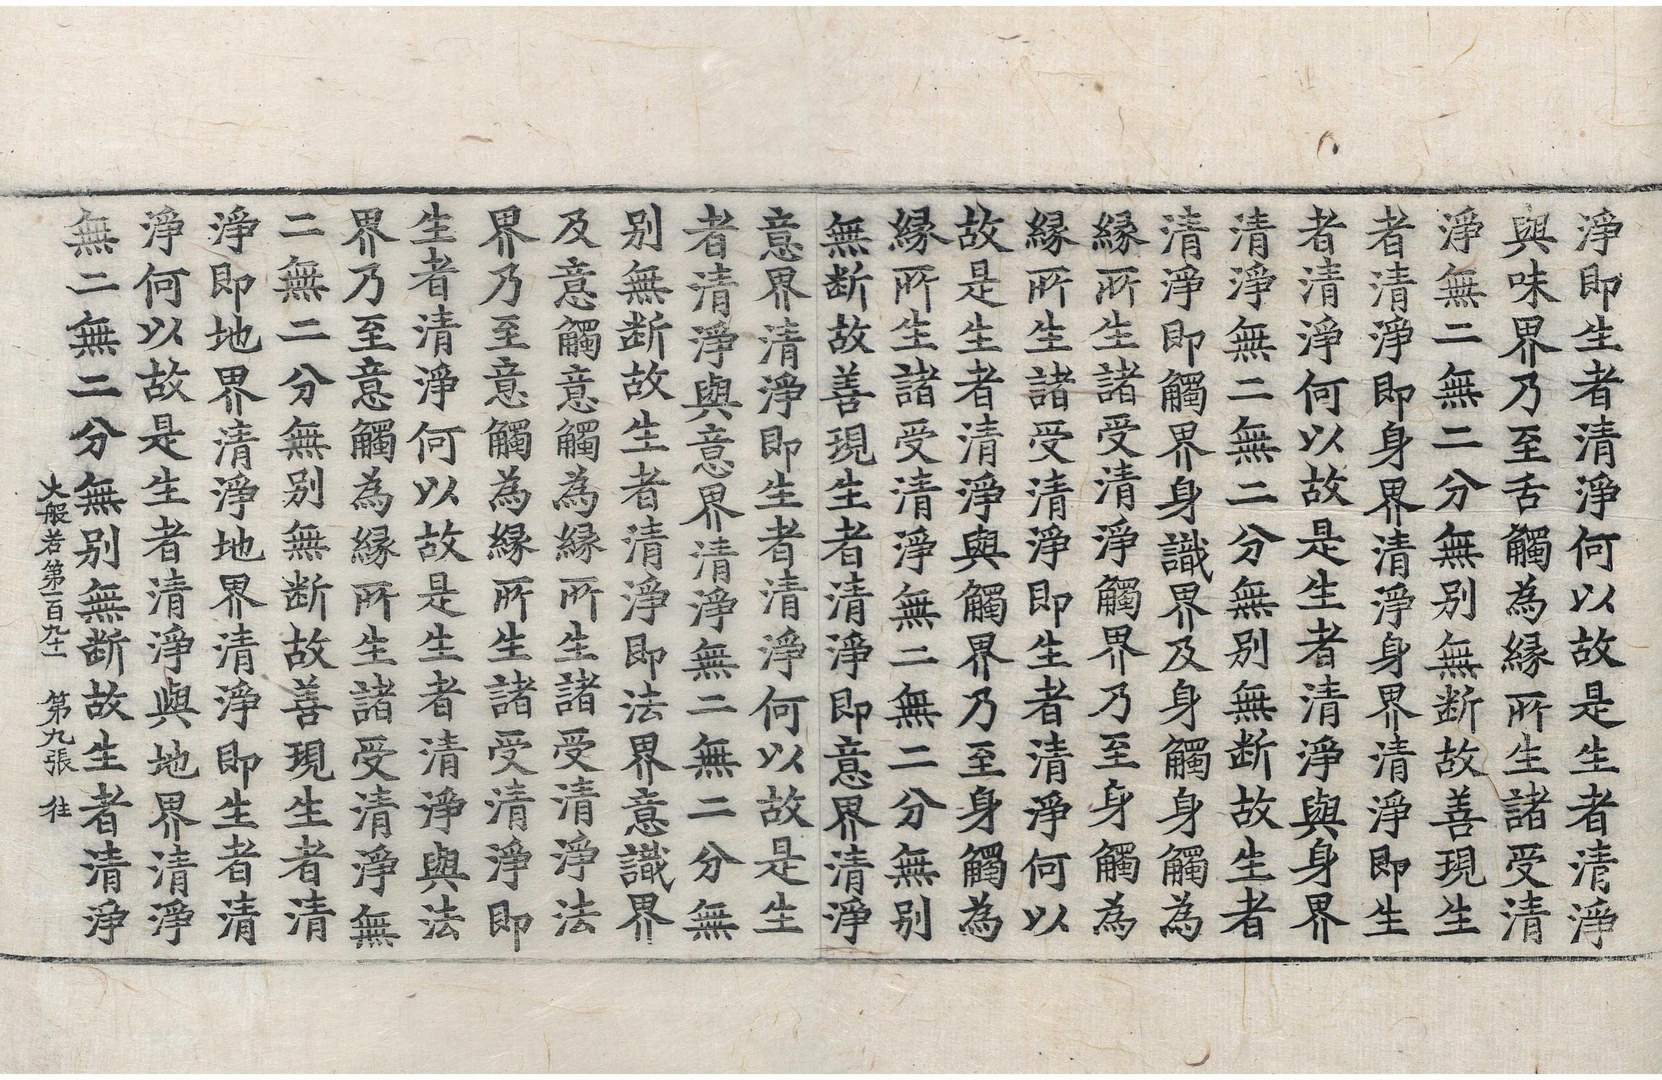 淨即生者清淨何以故是生者清淨
與味界乃至舌觸為縁所生諸受清
淨無二無二分無別無断故善現生
者清淨即身界清淨身界清淨即生
者清淨何以故是生者清淨與身界
清淨無二無二分無別無断故生者
清淨即觸界身識界及身觸身觸為
縁所生諸受清淨觸界乃至身觸為
縁所生諸受清淨即生者清淨何以
故是生者清淨與觸界乃至身觸為
縁所生諸受清淨無二無二分無別
無断故善現生者清淨即意界清淨
意界清淨即生者清淨何以故是生
者清淨與意界清淨無二無二分無
別無断故生者清淨即法界意識界
及意觸意觸為縁所生諸受清淨法
界乃至意觸為縁所生諸受清淨即
生者清淨何以故是生者清淨與法
界乃至意觸為縁所生諸受清淨無
二無二分無別無断故善現生者清
淨即地界清淨地界清淨即生者清
淨何以故是生者清淨與地界清淨
無二無二分無別無断故生者清淨
大般若第一百九十一 第九張 往